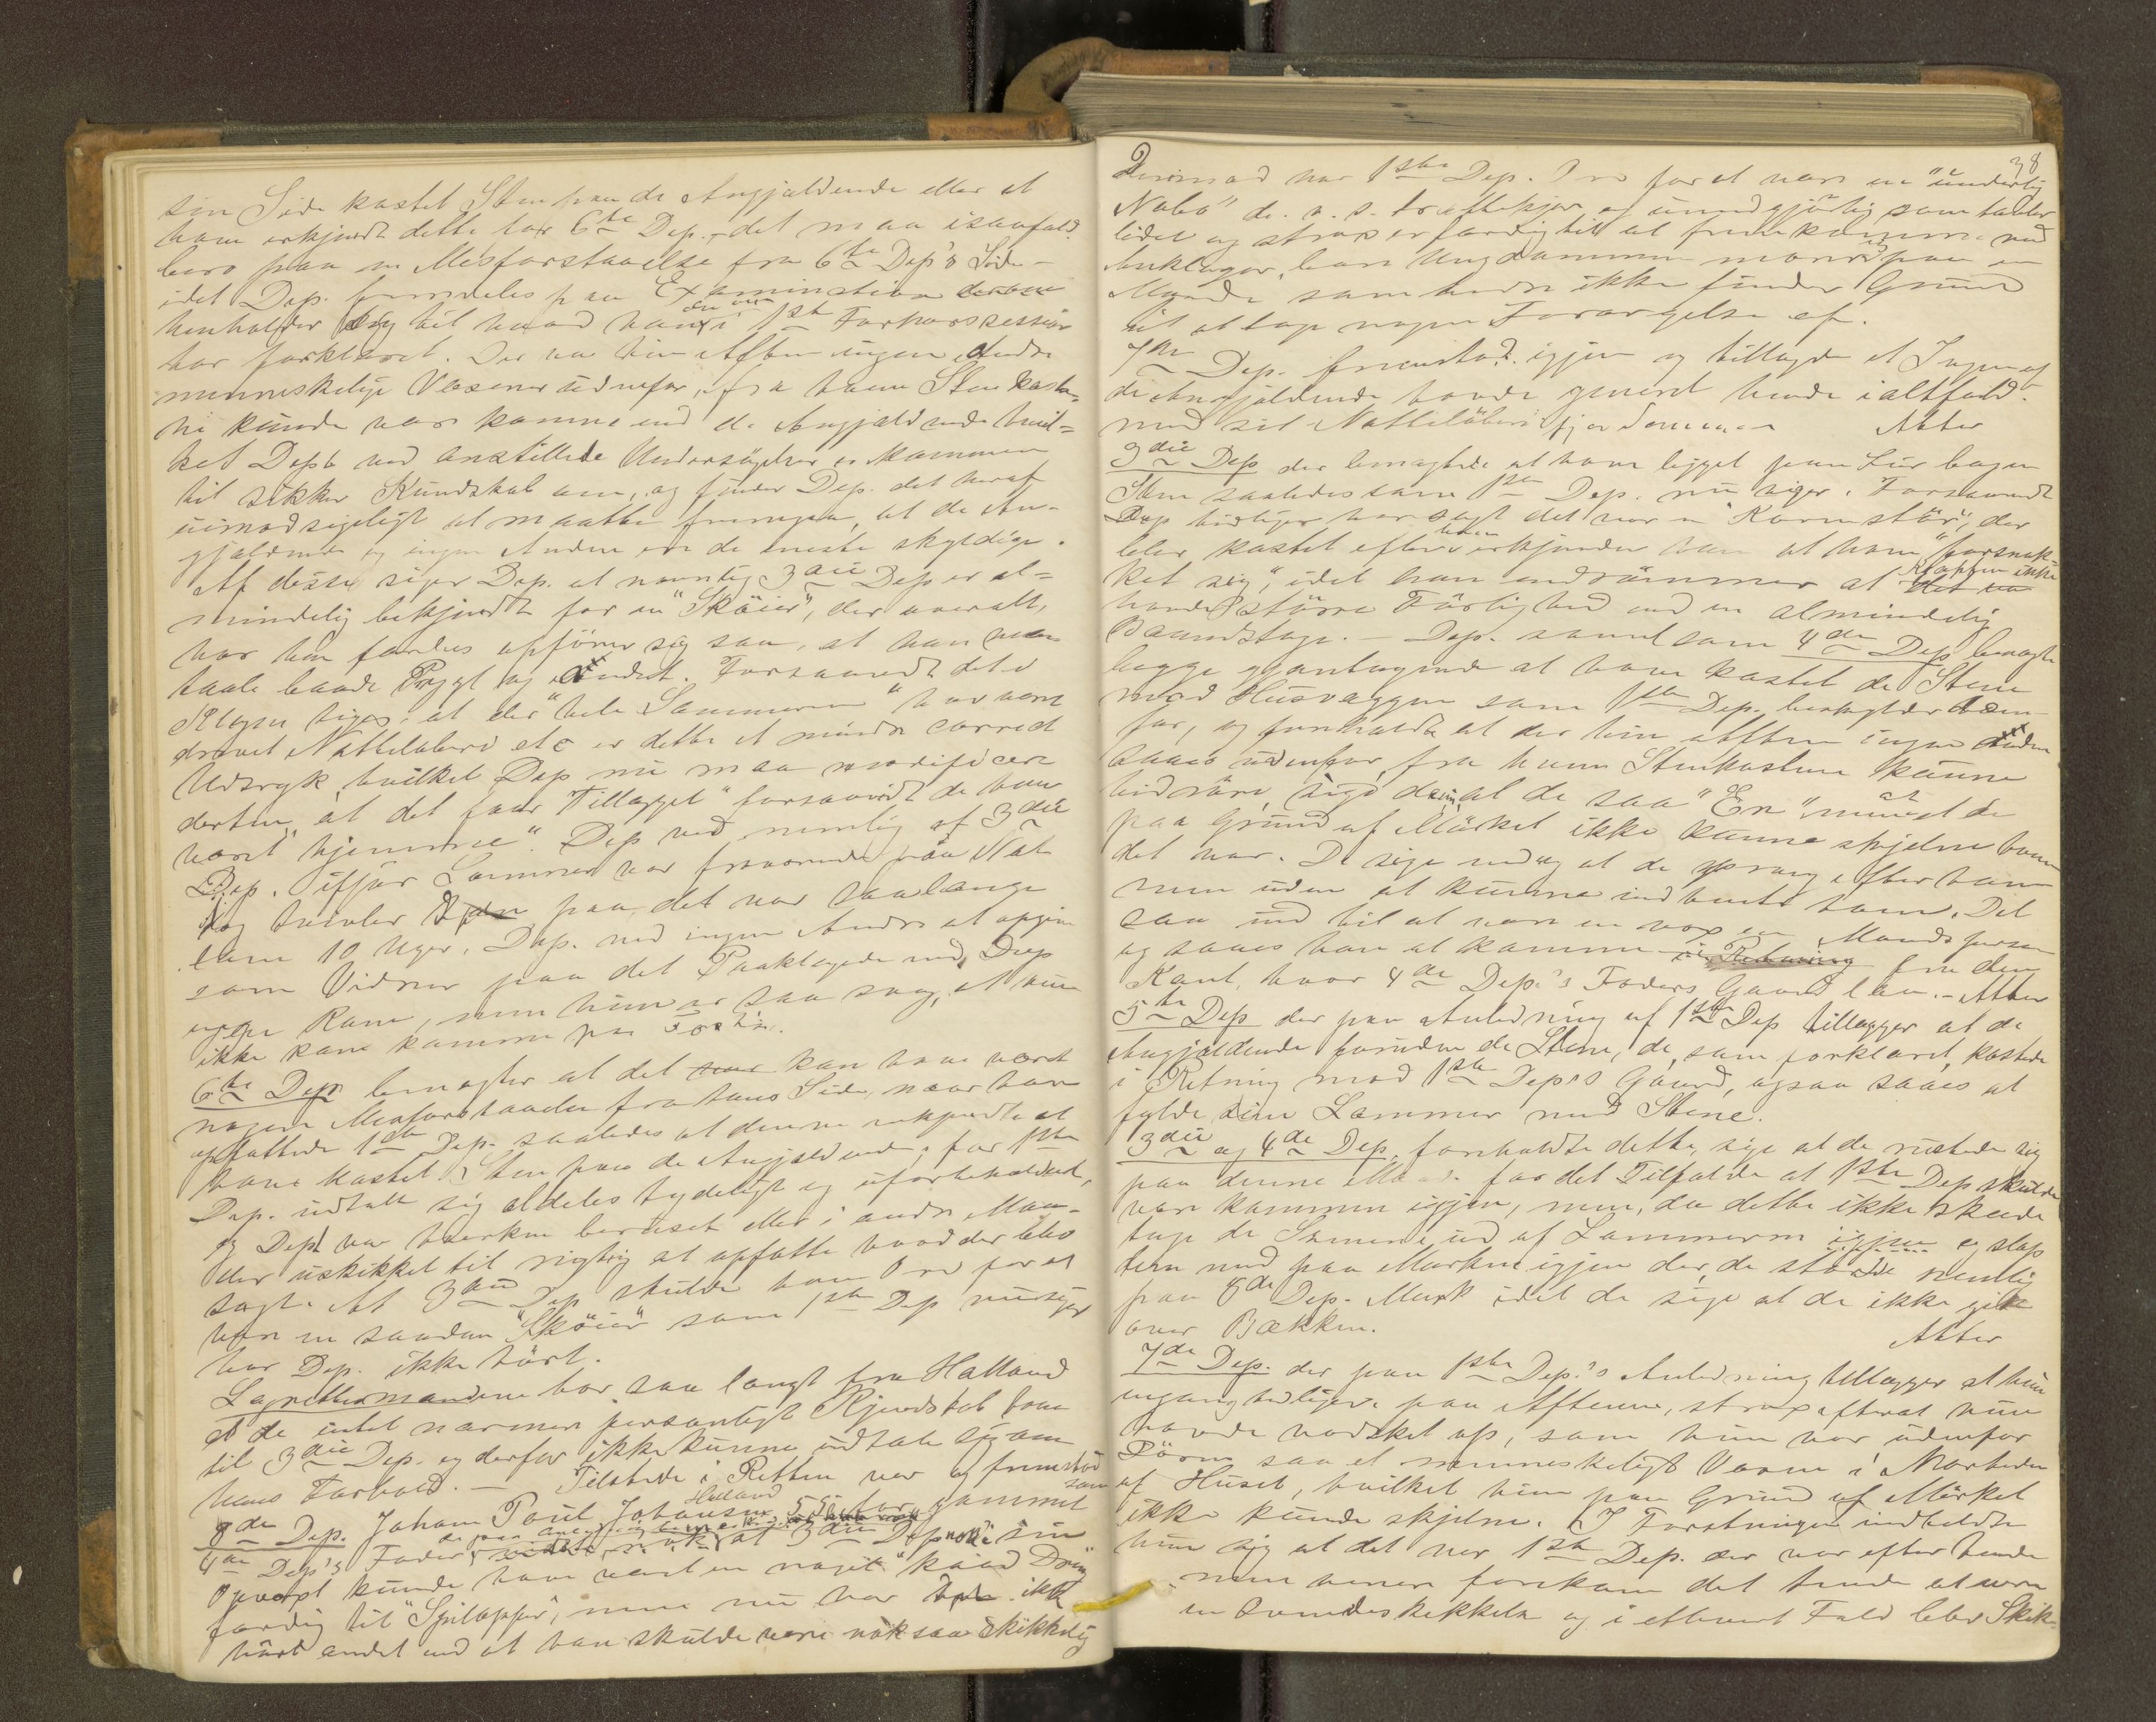 sin Side kastet Sten paa de Angjældende eller at
have erkjendt dette for 6te Dep., det maa isaafald
bero paa en Misforstaaelse fra 6te Dep's Side
idet Dep. fremdeles paa Examination
henholder sig til hvad han i 1ste Forhørssession
har forklaret. Der var hin Aften ingen Andre
menneskelige Væsener udenfor, fra hvem Stenkaste-
ri kunde være kommen end de Angjældende hvil-
ket Dept. ved anstillede Undersøgelser er kommen
til sikker Kundskab om, og finder Dep. det heraf
uimodsigeligt at maatte fremgaa, at de An-
gjældende og ingen Anden ere de eneste skyldige.
Af disse siger Dep. at navnlig 3die Dep er al-
mindelig bekjendt for en "Skøier", der overalt,
hvor han færdes opfører sig saa, at han maa
taale baade Prygl og Andet. Forsaavidt det i
Klagen siges, at der "hele Sommeren" har været
drevet Natteløberi etc er dette et mindre correct
Udtryk hvilket Dep nu maa modificere
derhen, at det faar Tillægget "forsaavidt de have
været hjemme". Dep ved nemlig at 3die
Dep. ifjor Sommer var fraværende paa Not
og tvivler paa, det var saalænge
som 10 Uger. Dep. ved ingen Andre at opgive
som Vidner paa det Paaklagede end Dep
egen Kone, men hun er saa svag, at hun
ikke kan komme paa Forhør.
6te Dep bemægter at det kan have været
nogen Misforstaaelse fra hans Side, naar han
opfattede 1ste Dep. saaledes at denne erkjendte at
have kastet Sten paa de Angjældende, for 1ste
Dep. udtalte sig aldeles tydeligt og uforbeholdent,
og Dept var hverken beruset eller i andre Maa-
der uskikket til rigtig at opfatte hvad der blev
sagt. At 3die Dep skulde have Ord for at
være en saadan "Skøier" som 1ste Dep nu siger
har Dep. ikke hørt.
Lagrettesmændene bor saa langt fra Halland
at de intet nærmere personligt Kjendskab have
til 3die Dep. og derfor ikke kunne udtale sig om
hans Forhold. — Tilstede i Retten var og fremstod
som
8de Dep. Johan Poul Johansen Halland 55 Aar gammel
4de Dep's Fader, at 3die Dep nok i sin
Opvæxt kunde have været en noget "kaad Dreng"
færdig til "Spilopper", men nu har ikke
hørt andet end at han skulde være nok saa skikkelig

38
Derimod har 1ste Dep. Ord for at være en "underlig
Nabo" d. v. s. trættekjær og umedgjørlig som taaler
lidet og strax er færdig til at fremkomme med
Anklager, bare Ungdommen morer sig paa en
Maade som Andre ikke finder Grund
til at tage nogen Forargelse af.
7de Dep. fremstod igjen og tillagde at Ingen af
de Angjældende havde generet hende ialtfald
med sit Natteløberi ifjor Sommer Atter
3die Dep der benægtede at have ligget paa Lur bagen
Sten saaledes som 1ste Dep. nu siger. Forsaavidt
Dep tidligere har sagt det var en "Kornstør", der
blev kastet efter erkjender han at have "forsnak-
ket sig" idet han indrømmer at Kjæppen ikke
havde større Førlighed end en almindelig
Baandstage. — Dep. samt som 4de Dep benægte
begge gjentagende at have kastet de Stene
mod Husvæggen som 1ste Dep. beskylder dem
for, og foreholdt at der hin Aften ingen Anden
saaes udenfor, fra hvem Stenkastene kunne
hidrøre, sige de, at de saa "En", men at de
paa Grund af Mørket ikke kunne skjelne hvem
det var. De sige endog at de sprang efter ham
men uden at kunne indhente ham. Det
saa ud til at være en voxen Mandsperson
og saaes han at komme fra den
Kant, hvor 4de Dep's Faders Gaard laa. — Atter
5te Dep der paa Anledning af 1ste Dep tillægger at de
Angjældende foruden de Stene, de, som forklaret, kastede
i Retning mod 1ste Dep's Gaard, ogsaa saaes at
fylde sine Lommer med Stene.
3die og 4de Dep. foreholdt dette, sige at de rustede sig
paa denne Maade for det Tilfælde at 1ste Dep skulde
være kommen igjen, men, da dette ikke skede
tage de Stenene ud af Lommerne igjen og slap
dem ned paa Marken igjen der, de stode nemlig
paa 8de Dep. Mark idet de sige at de ikke gik
over Bækken. Atter
7de Dep. der paa 1ste Dep.'s Anledning tillægger at hun
engang tidligere paa Aftenen, strax efterat hun
havde vadsket op, som hun var udenfor
Døren saa et menneskeligt Væsen i Nærheden
af Huset, hvilket hun paa Grund af Mørket
ikke kunde skjelne. I Forstningen indbildte
hun sig at det var 1ste Dep. der var efter hende
men senere forekom det hende at være
en Kvindeskikkelse og i ethvert Fald blev Skik-